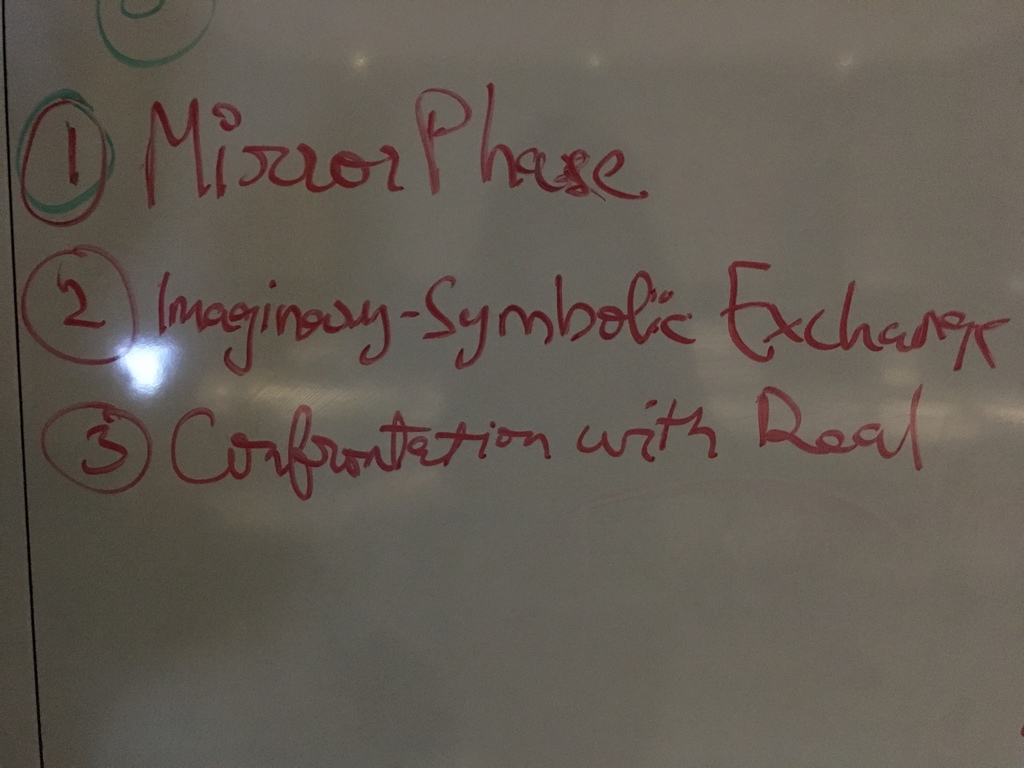 1 Mirror Phase
2 Imaginary-Symbolic Exchange
3 Confrontation with Real